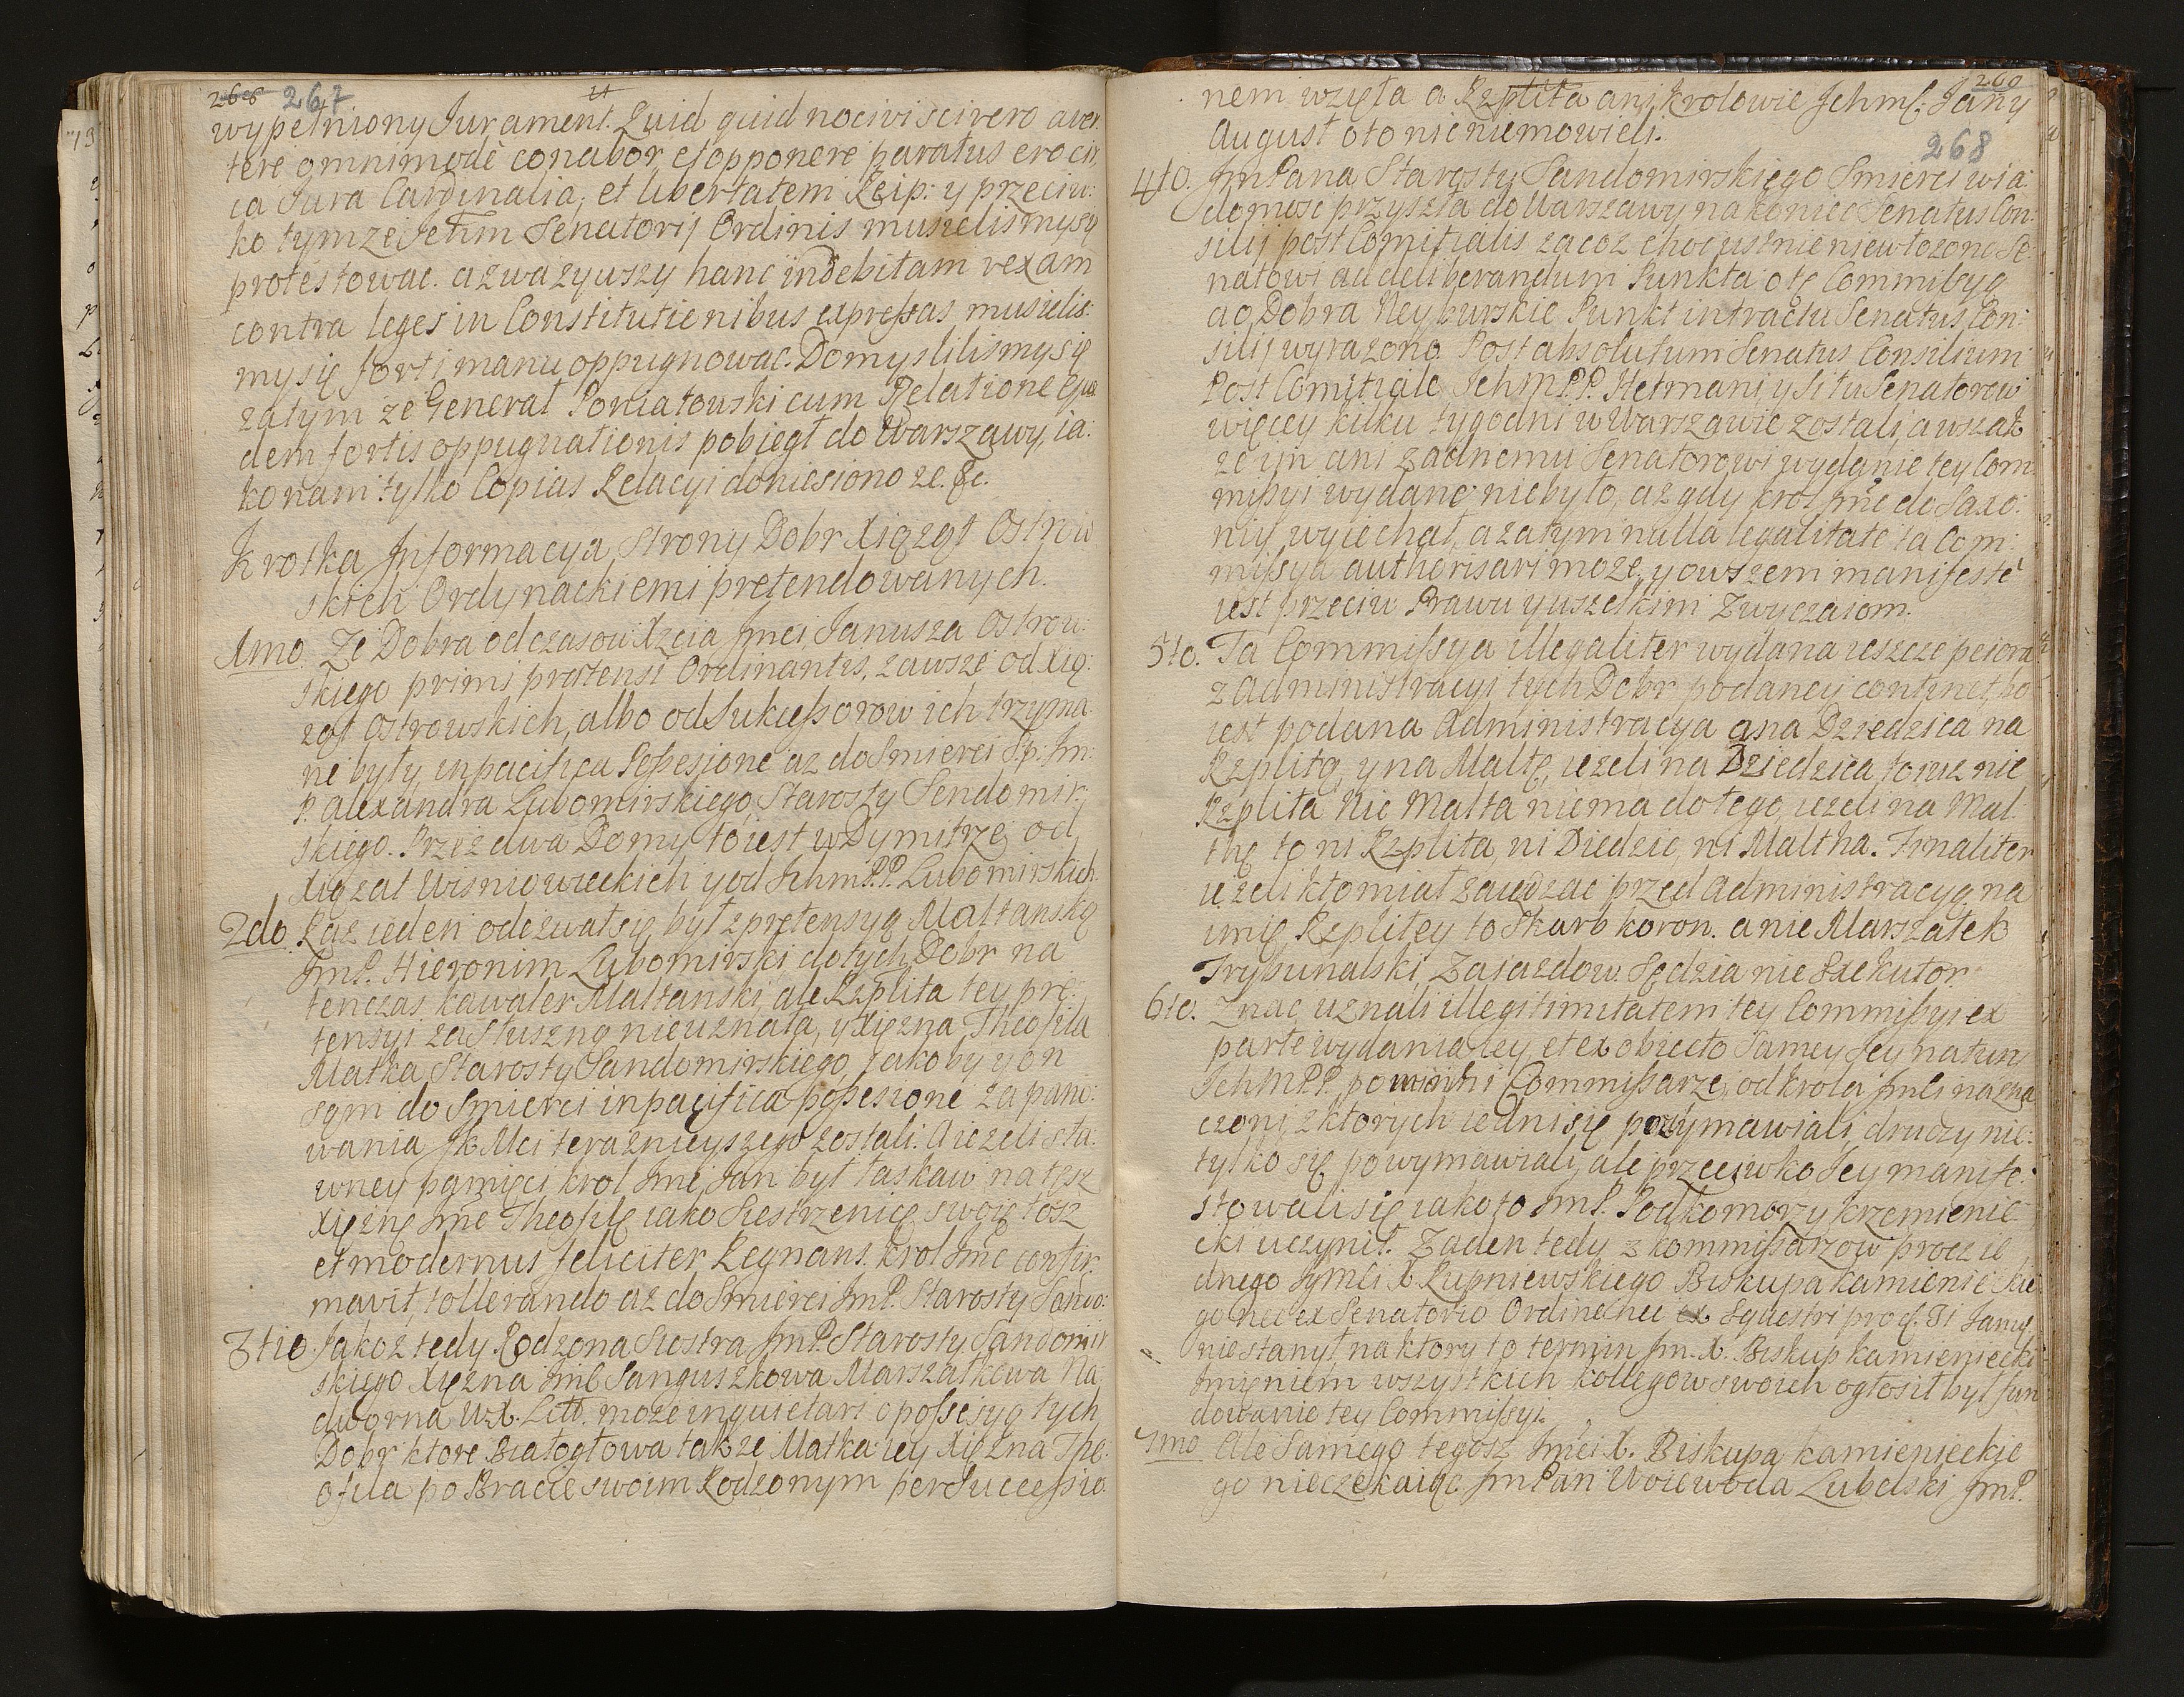 268 267
wypełniony Jurament. Quid quid nocivi scivero aver:
tere omnimodè conabor, et opponere paratus ero cir:
ca Jura Cardinalia, et libertatem Reip: y przeciw:
ko tymze Ichm Senatorij Ordinis musielismy się
protestowac. azwazywszy hanc indebitam vexam
contra leges in Constitutionibus expressas musielis:
my się forti manu oppugnowac. Domyslilismy się
zatym ze Generał Poniatowski cum Relatione ejus
dem fortis oppugnationis pobiegł do Warszawy, ia:
ko nam tylko Copias Relacyi doniesiono ze. &c.
Krotka Informacya, Strony Dobr Xiąząt Ostrow
skich Ordynackiemi pretendowanych.
1mo. Ze Dobra od czasow Xzcia Jmci Janusza Ostrow:
skiego primi prætensi Ordinantis, zawsze od Xią:
ząt Ostrowskich, albo od Sukcessorow ich trzyma
ne były in pacifica possesione az do Smierci S.p: Jm:
P. Alexandra Lubomirskiego Starosty Sendomir:
skiego. Przez dwa Domy to iest w Dymitrze od
Xiązat Wisniowieckich y od Ichm P.P. Lubomirskich
2do Raz ieden odezwał się był z pretensyą Maltanską
JmP. Hieronim Lubomirski do tych Dobr na
tenczas kawaler Maltanski, ale Rzplita tey pre:
tensyi za Słuszną nie uznała, y Xięzna Theofila
Matka Starosty Sandomirskiego, jakoby y on
sam do Smierci in pacifica possesione za pano:
wania JK Mci teraznieyszego zostali. A iezeli sła:
wney pamięci krol Jmć Jan był łaskaw na tęsz
Xięznę Jmć Theofilę iako Siestrzenicę swoię tosz
et modernus feliciter Regnans krol Jmć confir:
mavit, tollerando az do Smierci JmP. Starosty Sando:
3tio. Jakoz tedy Rodzona Siostra JmP. Starosty Sandomir
skiego Xięzna Jmć Sanguszkowa Marszałkowa Na:
dworna W.X. Litt. moze inquietari o possesyą tych
Dobr ktore Białogłowa takze Matka iey Xięzna The:
ofila po Bracie swoim Rodzonym per Successio
260
nem wzięła a Rzplita ani krolowie Ichmć Jan y
August oto nic nie mowieli.
268
4to. JmPana Starosty Sandomirskiego Smierci wia:
domosc przyszła do Warszawy na koniec Senatus Con:
silij post Comitialis zacoz choc ustnie niewłozono Se:
natowi ad deliberandum Punkta o tę Commissyą
ao Dobra Neyburskie Punkt in tractu Senatus Con:
silij wyrazono. Post absolutum Senatus Consilium
Post Comitiale Ichm P.P. Hetmani y Si tu Senatorowi
więcey kilku tygodni w Warszawie zostali, a wszak
ze im ani zadnemu Senatorowi wydanie tey Com
missyi wydane nie było, az gdy krol Jmć do Saxo:
nij wyiechał, a zatym nulla legalitate ta Com:
missya authorisari moze, y owszem manifestè
iest przeciw Prawu y wszelkim Zwyczaiom.
5to. Ta Commissya illegaliter wydana ieszcze peiora
z Administracyi tych Dobr podaney continet, bo
iest podana Administracya a na Dziedzica na
Rzplitą, y na Maltę, iezeli na Dziedzica to iuz nic
Rzplita Nic Malta niema do tego, iezeli na Mal:
thę to ni Rzplita, ni Diedzic, ni Maltha. Finaliter
iezeli kto miał zawdzac przed Administracyą na
imię Rzplitey to Skarb koron. a nie Marszałek
Trybunalski, Zaiazdow Sędzia nie Exekutor.
6to. Znac uznali illegitimitatem tey Commissyi ex
parte wydania iey et ex obiecto Samey Iey natury
Ichm P.P. powinni Commissarze, od krola Jmci nazna
czoni, z ktorych iedni się powymawiali, druczy nie:
tylko się powymawiali, ale przeciwko Iey manife:
stowali się iako to JmP. Podkomorzy krzemienie
cki uczynił. Zaden tedy z kommissarzow procz ie
dnego Jgmci X. Rupniewskiego Biskupa kamienieckie
go nec ex Senatorio Ordine nec ex Equestri procz
nie stanął na ktory to termin Jm. X. Biskup kamieniecki
Jmieniem wszystkich kollegow swoich ogłosił był fun
dowanie tey Commissyi.
7mo Ale Samego tegosz Jmci X. Biskupa kamienieckie
go nieczekaiąc JmPan Woiewoda Lubelski JmP.